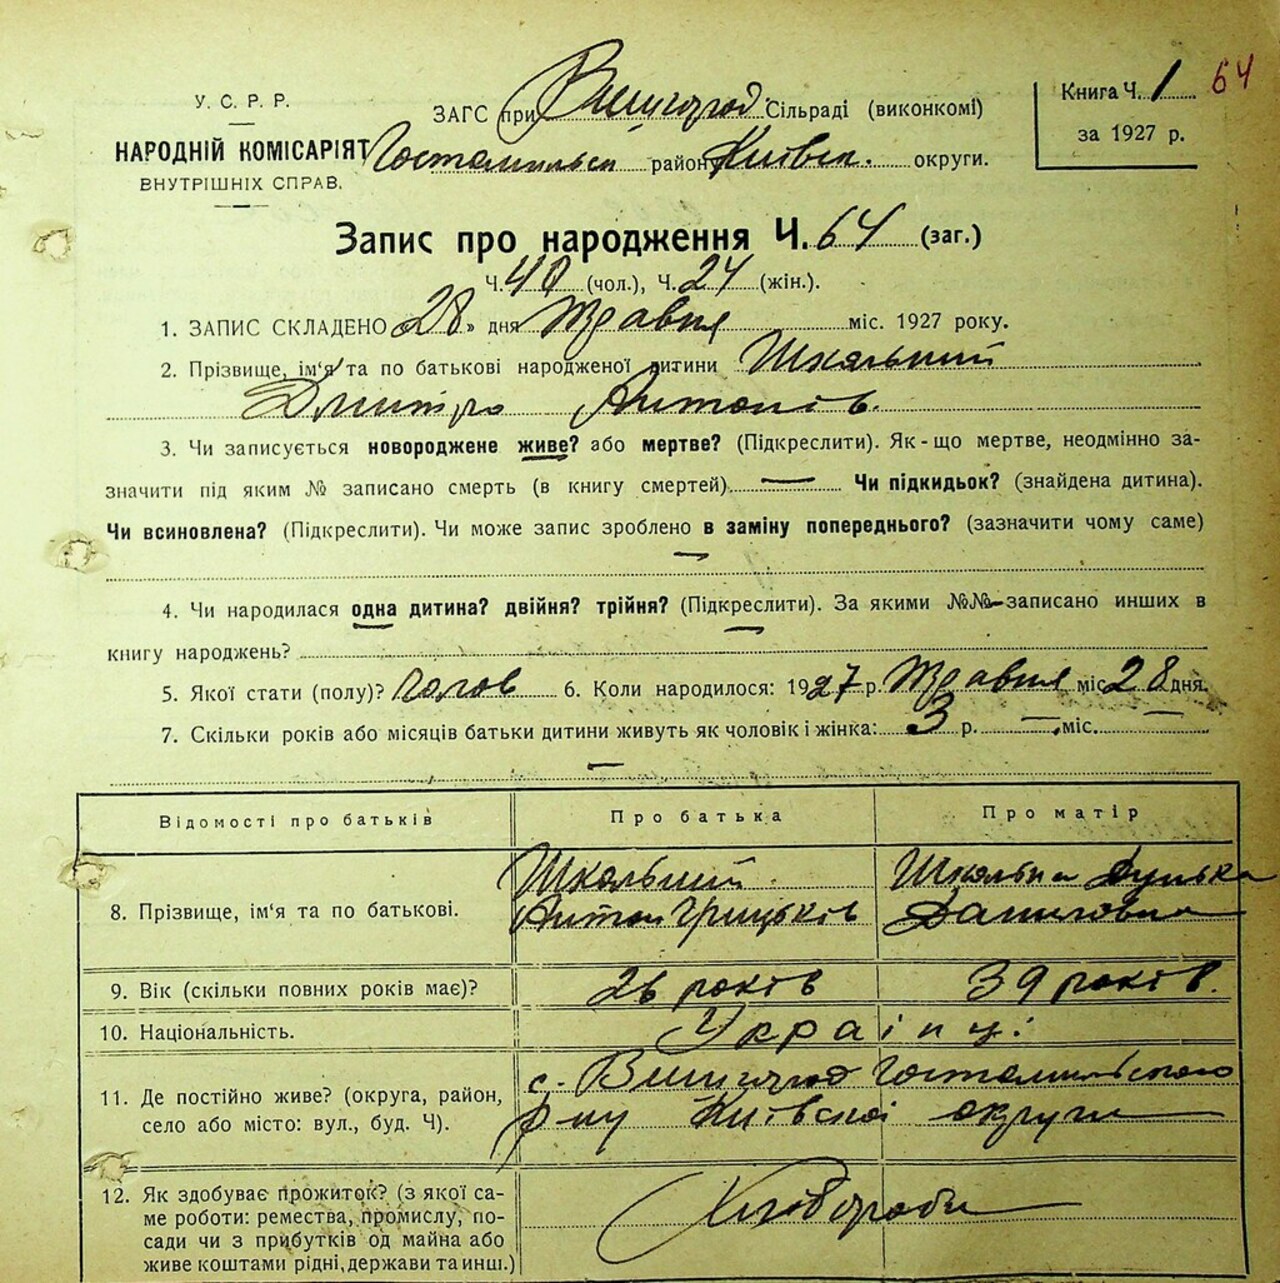 64
У. С. Р. Р.
НАРОДНІЙ КОМІСАРІЯТ
ВНУТРІШНІХ СПРАВ.
ЗАГС при Вишгород. Сільраді (виконкомі)
Гостомельськ району Київськ. округи.
Книга Ч. 1
за 1927 р.
Запис про народження Ч. 64 (заг.)
Ч. 40 (чол.), Ч. 24 (жін.).
1. ЗАПИС СКЛАДЕНО „28" дня Травня міс. 1927 року.
2. Прізвище, ім'я та по батькові народженої дитини Шкльний
Дмитро Антонів.
3. Чи записується новороджене живе? або мертве? (Підкреслити). Як-що мертве, неодмінно за-
значити під яким № записано смерть (в книгу смертей) — Чи підкидьок? (знайдена дитина).
Чи всиновлена? (Підкреслити). Чи може запис зроблено в заміну попереднього? (зазначити чому саме)
—
4. Чи народилася одна дитина? двійня? трійня? (Підкреслити). За якими №№ записано инших в
книгу народжень? —
5. Якої стати (полу)? чолов 6. Коли народилося: 1927 р. Травня міс 28 дня.
7. Скільки років або місяців батьки дитини живуть як чоловік і жінка: 3 р. — міс. —
—
Відомості про батьків Про батька Про матір
8. Прізвище, ім'я та по батькові. Школьний Антон Грицьків
Даниловна
9. Вік (скільки повних років має)? 26 років 39 років.
10. Національність. Українці
11. Де постійно живе? (округа, район, с. Вишгород Гостомельського
село або місто: вул., буд. Ч). р-ну Київскої округи
12. Як здобуває прожиток? (з якої са-
ме роботи: ремества, промислу, по-
сади чи з прибутків од майна або
живе коштами рідні, держави та инш.) Хлібороби